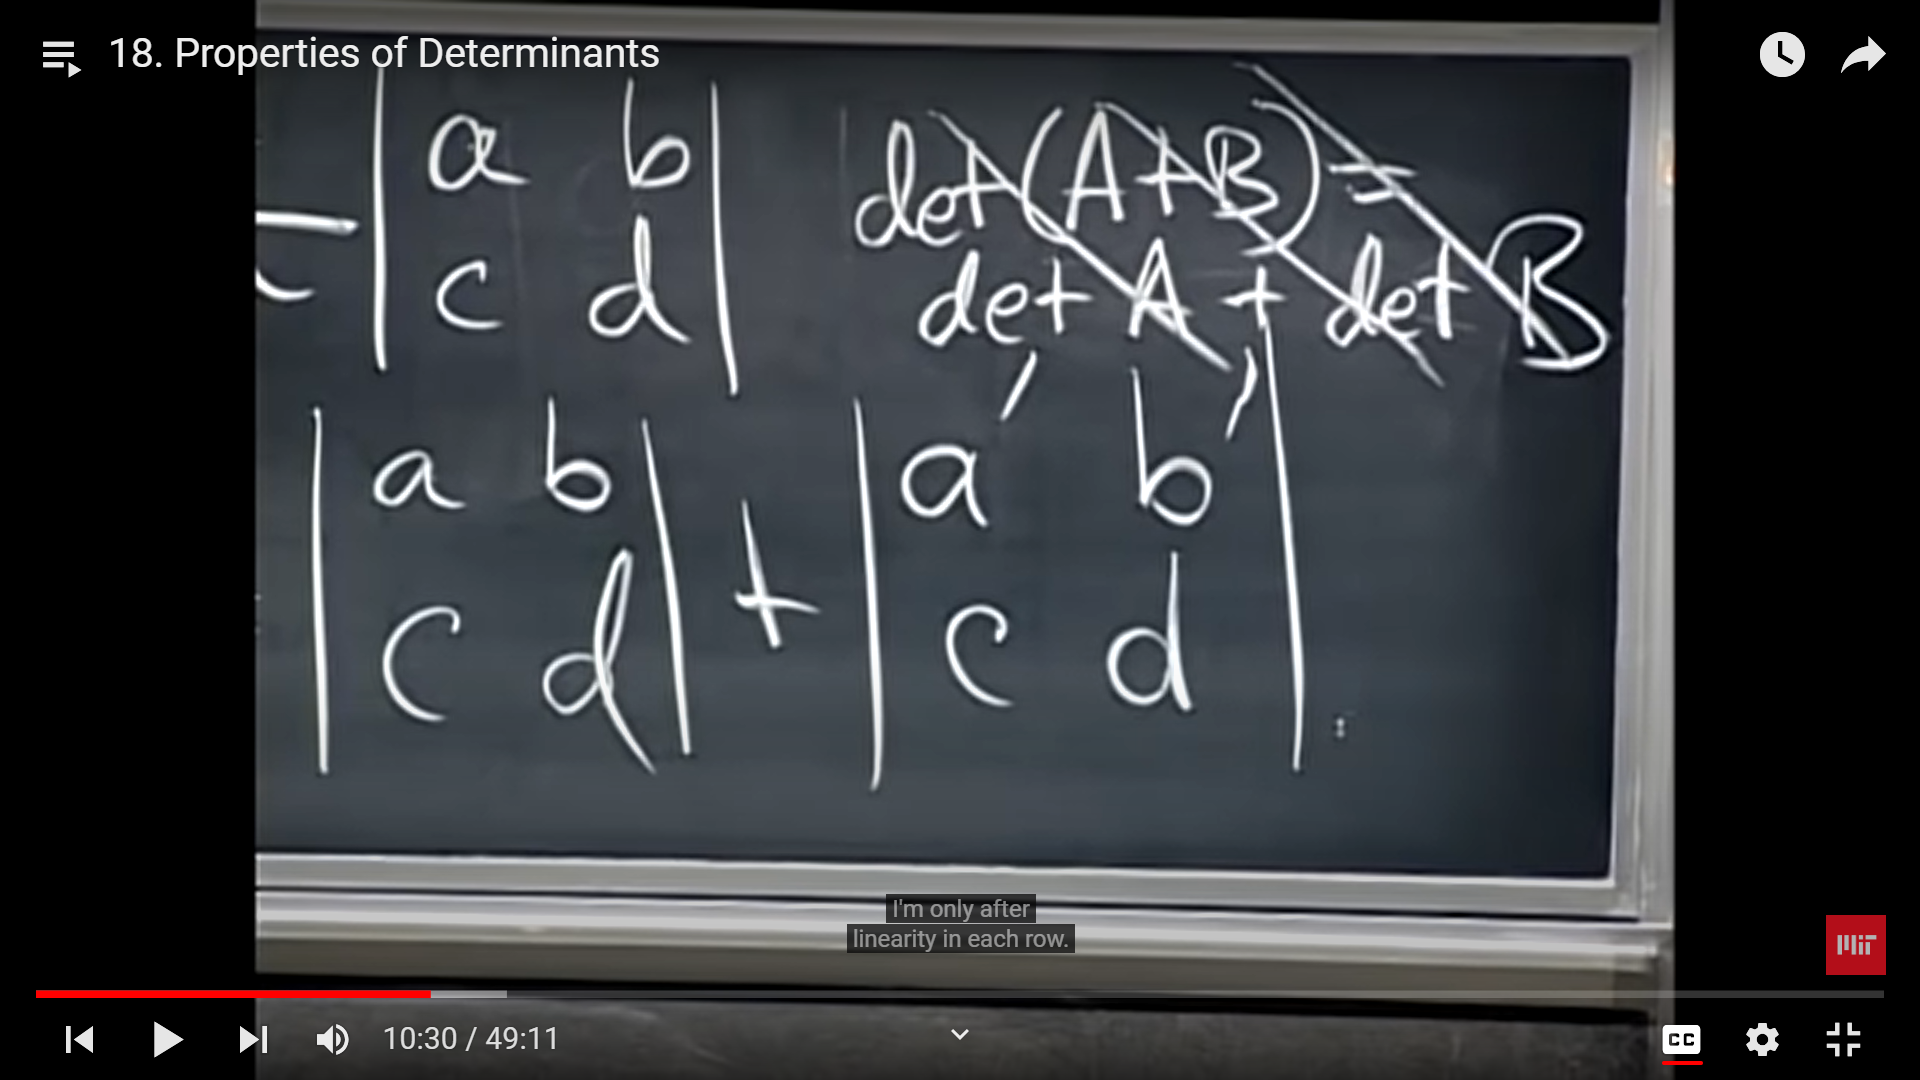 18. Properties of Determinants
a b
c d
det(A+B) =
det A + det B
a b
c d
+
a' b'
c d
:
I'm only after
linearity in each row.
MIT
10:30 / 49:11
CC